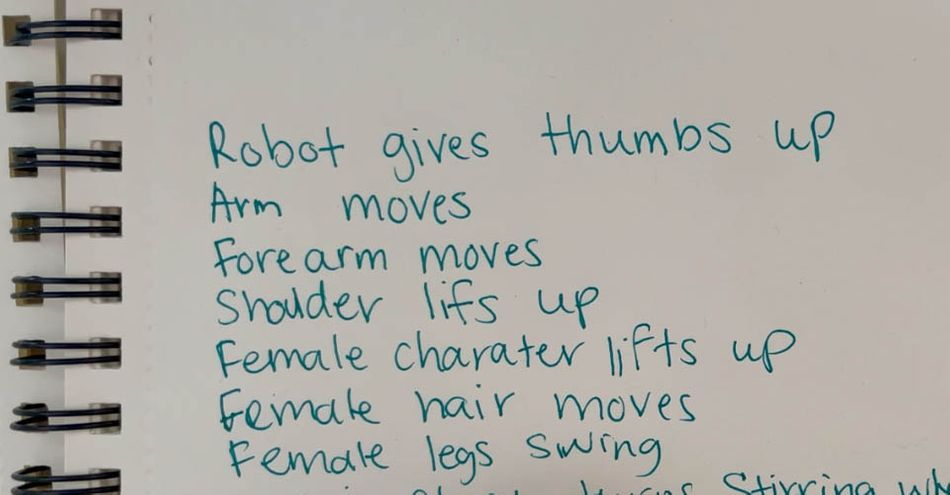 Robot gives thumbs up
Arm moves
Forearm moves
Shoulder lifs up
Female charater lifts up
Female hair moves
Female legs swing
Stirring